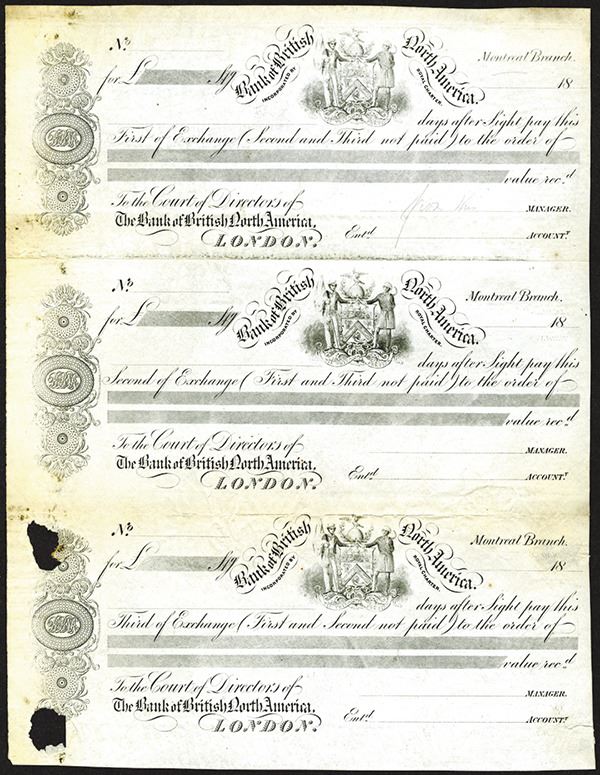 No
Bank of British North America.
INCORPORATED BY ROYAL CHARTER.
Montreal Branch.
for £ Stg 18
days after Sight pay this
First of Exchange (Second and Third not paid) to the order of
value rec.d
To the Court of Directors of
MANAGER.
The Bank of British North America,
LONDON. Ent.d ACCOUNT.T
No
Bank of British North America.
INCORPORATED BY ROYAL CHARTER.
Montreal Branch.
for £ Stg 18
days after Sight pay this
Second of Exchange (First and Third not paid) to the order of
value rec.d
To the Court of Directors of
MANAGER.
The Bank of British North America,
LONDON. Ent.d ACCOUNT.T
No
Bank of British North America.
INCORPORATED BY ROYAL CHARTER.
Montreal Branch.
for £ Stg 18
days after Sight pay this
Third of Exchange (First and Second not paid) to the order of
value rec.d
To the Court of Directors of
MANAGER.
The Bank of British North America,
LONDON. Ent.d ACCOUNT.T